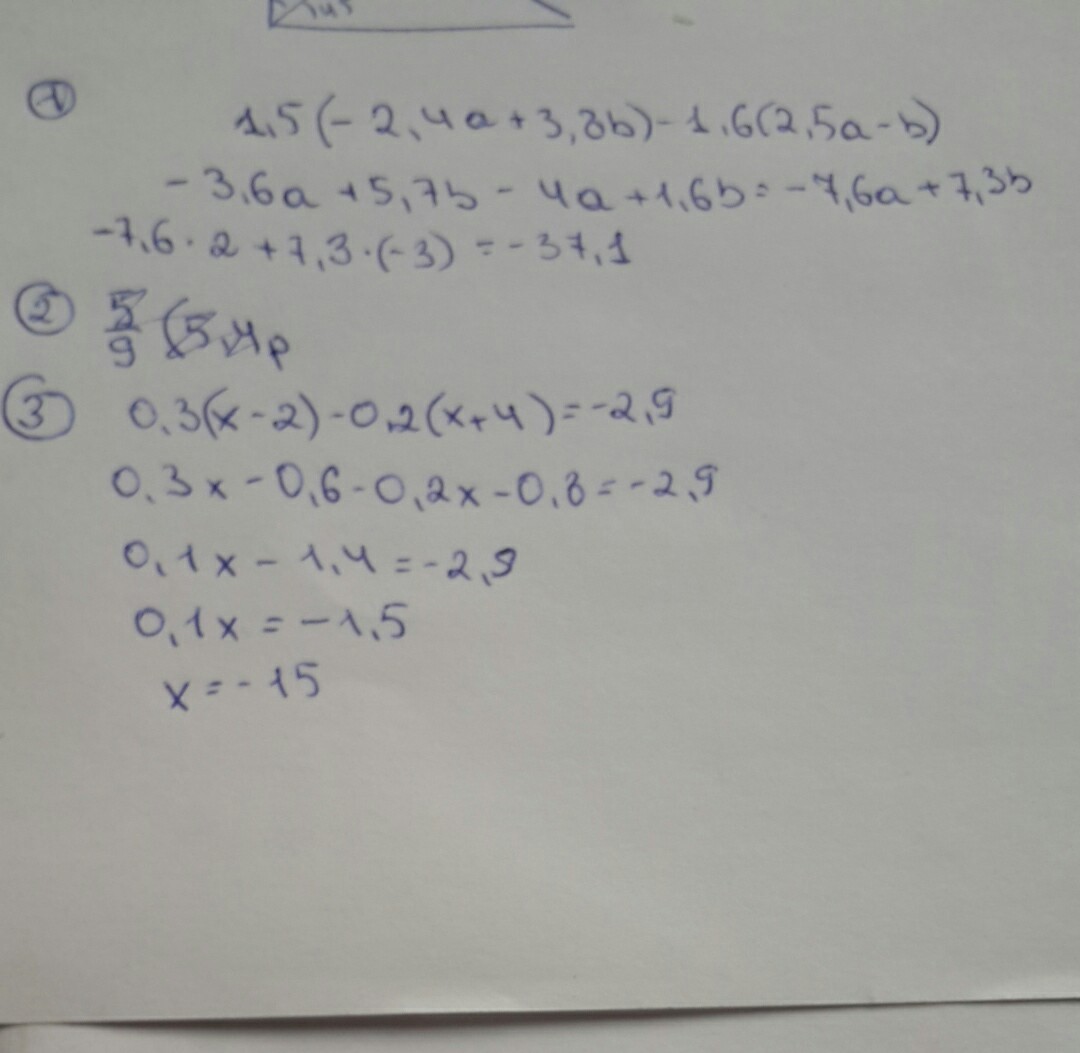 ① 1,5(-2,4a+3,8b)-1,6(2,5a-b)
-3,6a+5,7b-4a+1,6b=-7,6a+7,3b
-7,6·2+7,3·(-3)=-37,1
② 5/9 (5,4p
③ 0,3(x-2)-0,2(x+4)=-2,9
0,3x-0,6-0,2x-0,8=-2,9
0,1x-1,4=-2,9
0,1x=-1,5
x=-15